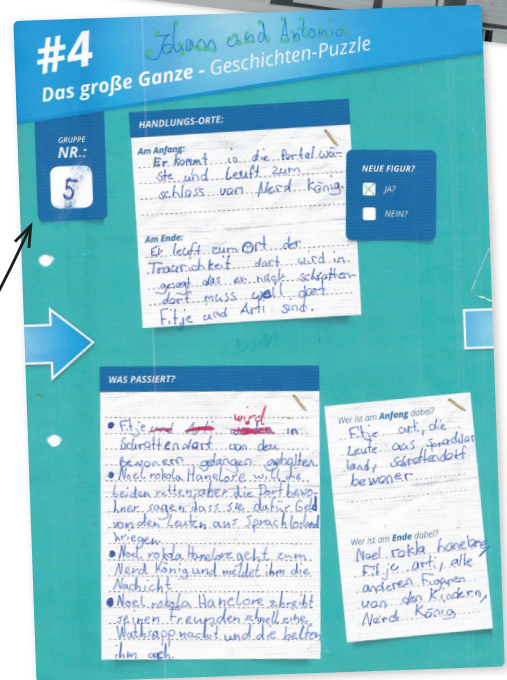 #4
Johann und Antonia
Das große Ganze - Geschichten-Puzzle
GRUPPE
NR.:
5
HANDLUNGS-ORTE:
Am Anfang:
Er kommt in die Portal wü-
ste und leuft zum
schloss vom Nerd König.
Am Ende:
Er leuft zum Ort der
Traurichkeit dort wird in
gesagt das er nach schrotten-
dorf muss well dort
Fitje und Arti sind.
NEUE FIGUR?
JA?
NEIN?
WAS PASSIERT?
• Fitje und Arti wird in
Schrottendorf von den
bewonern gefangen gehalten.
• Noel rokola Hanelore will die
beiden retten, aber die Dorf bewo-
hner sagen dass sie dafür Geld
von den Leuten aus Sprachlosland
kriegen.
• Noel rokola Hanelore geht zum
Nerd König und meldet ihm die
Nachicht
• Noel rokola Hanelore schreibt
seinen Freunden schnell eine
Wathsapp nacht und die helfen
ihm auch.
Wer ist am Anfang dabei?
Fitje arti, die
Leute aus sprachlos
land, Schrottendorf
bewoner
Wer ist am Ende dabei?
Noel rokla, hanelore,
Fitje arti, alle
anderen Figuren
von den Kindern,
Nerd König